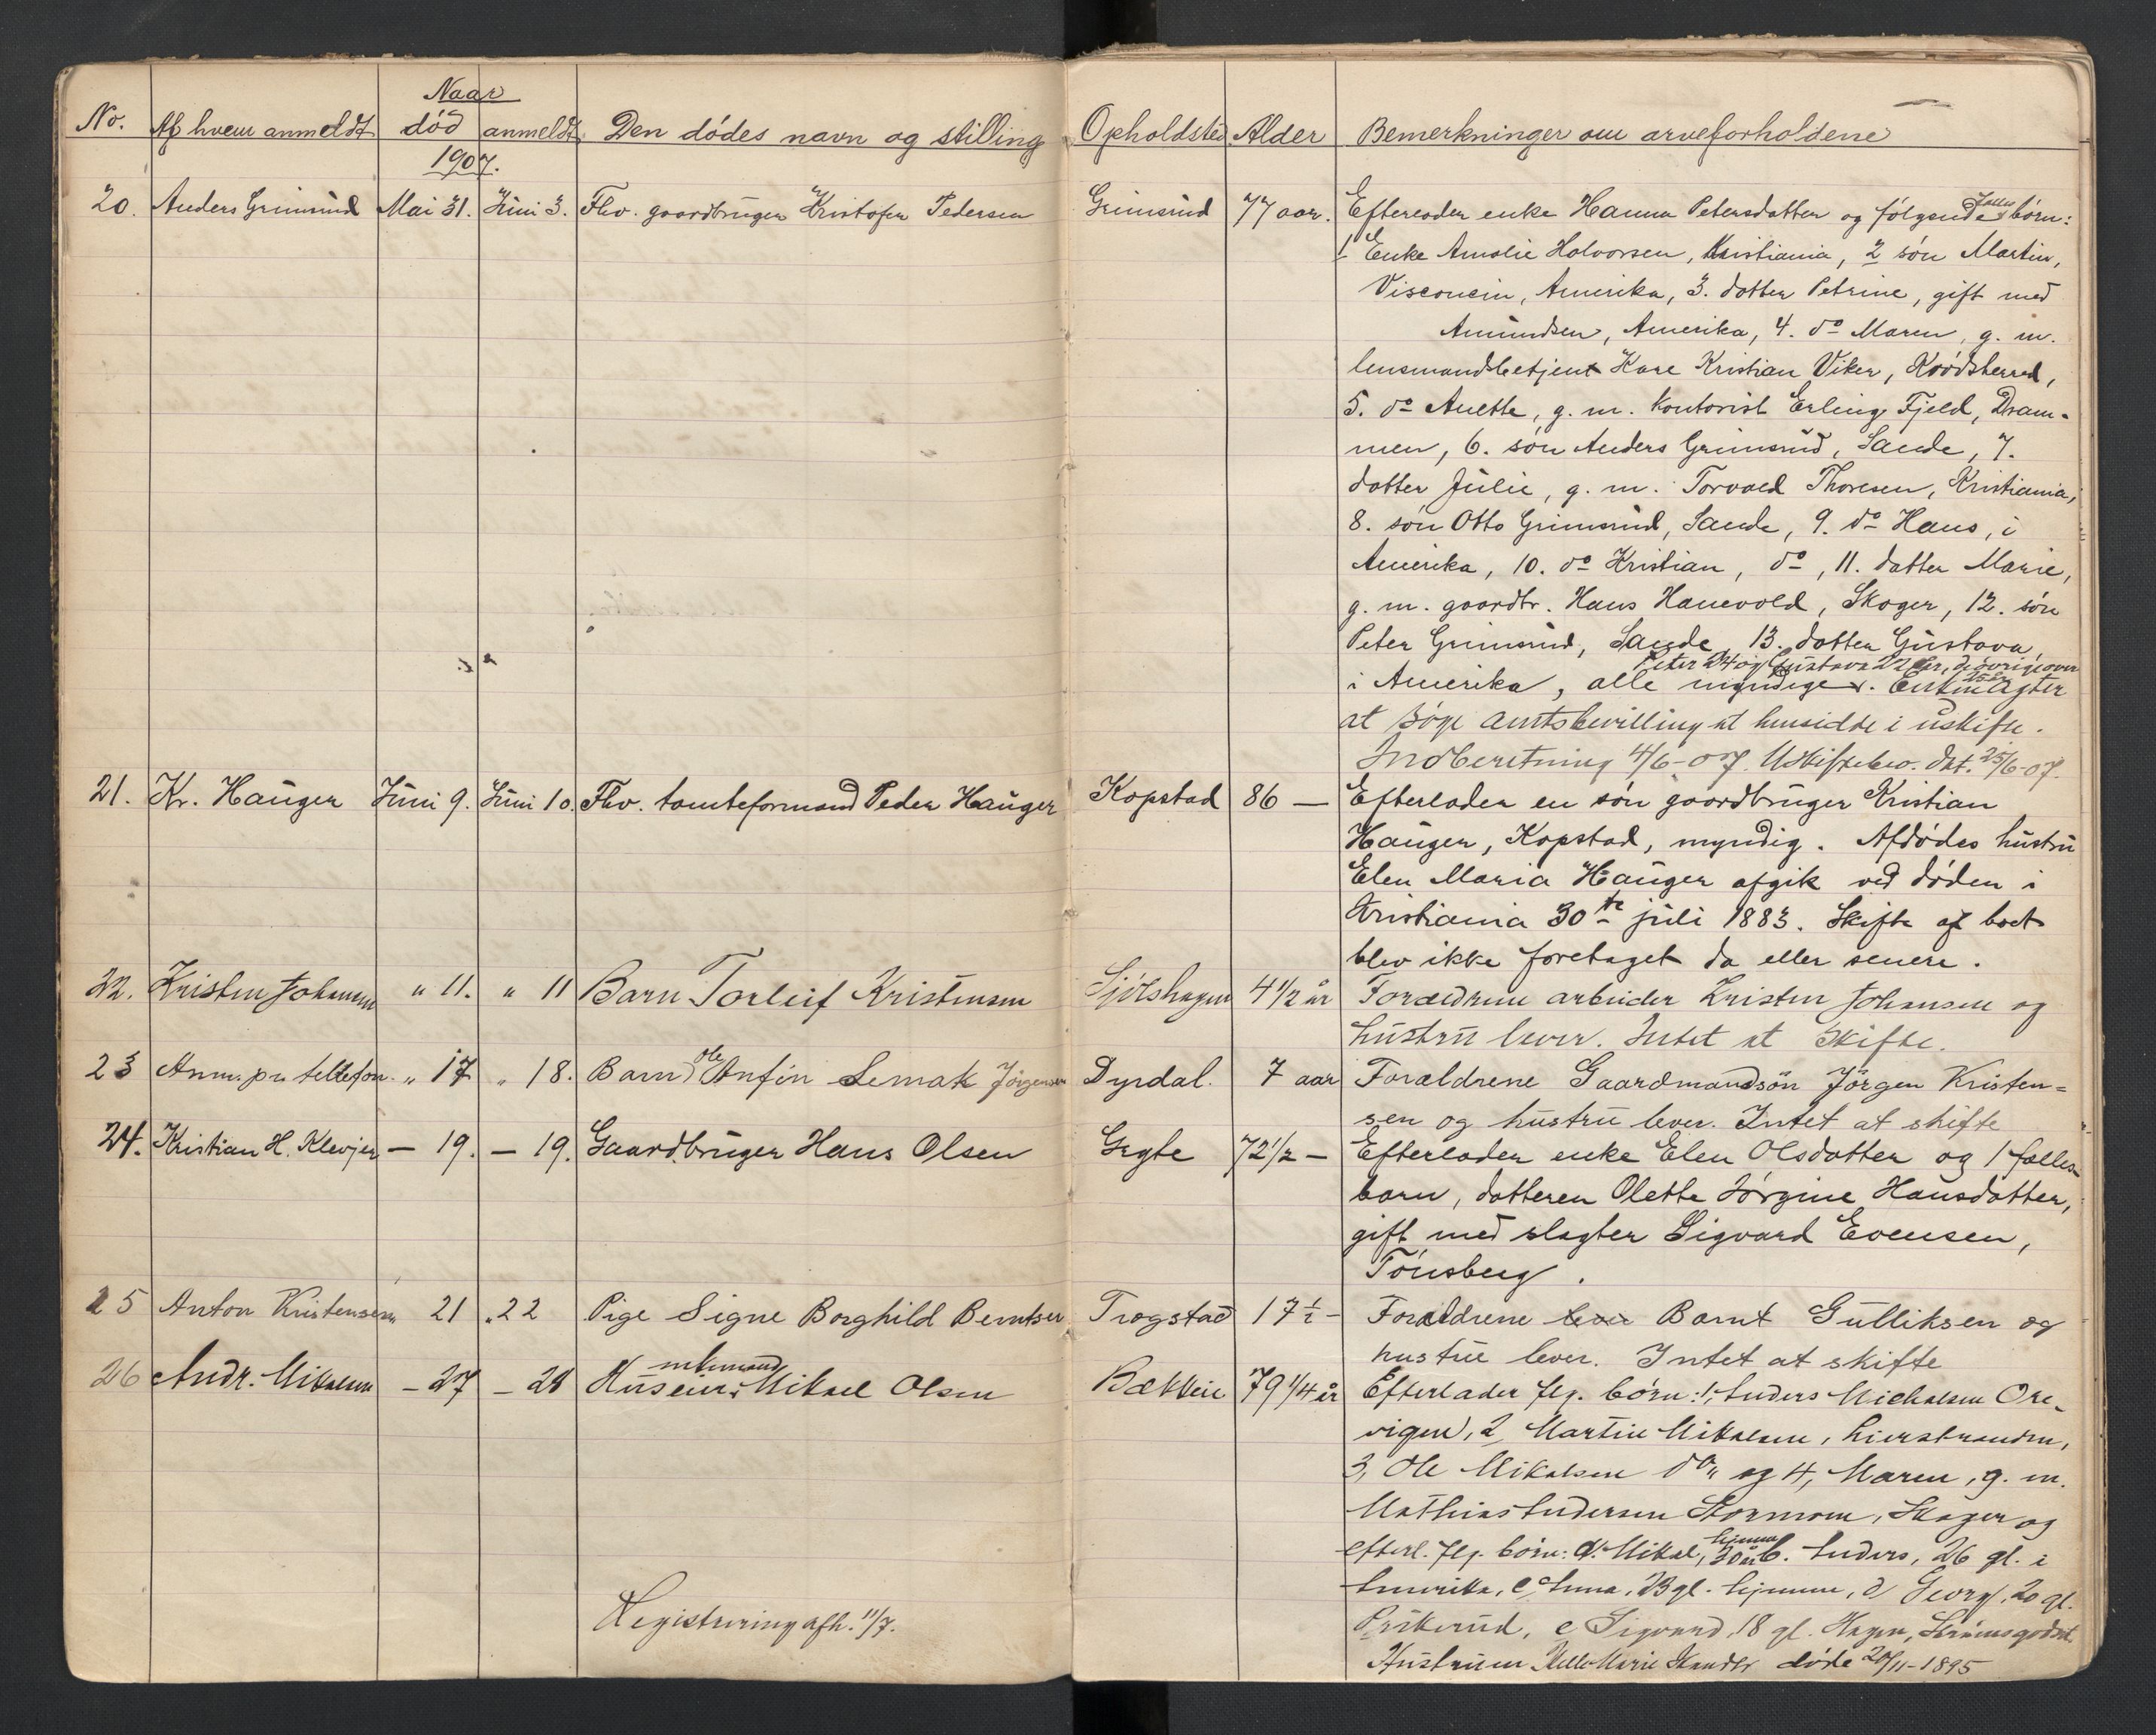 Naar
No. Af hvem anmeldt død anmeldt Den dødes navn og stilling Opholdsted Alder Bemerkninger om arveforholdene
1907.
20. Anders Grimsrud Mai 31. Juni 3. Fhv. gaardbruger Kristofer Pedersen Grimsrud 77 aar. Efterlader enke Hanna Petersdatter og følgende fælles børn:
1 Enke Amalie Halvorsen, Kristiania, 2 søn Martin,
Visconsin, Amerika, 3. datter Petrine, gift med
Amundsen, Amerika, 4. do Maren, g. m.
lensmandsbetjent Kare Kristian Viker, Krødsherred,
5. do Anette, g. m. kontorist Erling Fjeld, Dram-
men, 6. søn Anders Grimsrud, Sande, 7.
datter Julie, g. m. Torvald Thoresen, Kristiania,
8. søn Otto Grimsrud, Sande, 9. do Hans, i
Amerika, 10. do Kristian, do, 11. datter Marie,
g. m. gaardbr. Hans Hanevold, Skoger, 12. søn
Peter Grimsrud, Sande, 13. datter Gustava,
Peter 24 og Gustava 22 år, de øvrige over 25 år
i Amerika, alle myndige. Enken agter
at søge amtsbevilling at hensidde i uskifte.
Indberetning 4/6-07. Uskiftebev. dat. 25/6-07.
21. Kr. Hauger Juni 9. Juni 10. Fhv. tomteformand Peder Hauger Kopstad 86 — Efterlader en søn gaardbruger Kristian
Hauger, Kopstad, myndig. Afdødes hustru
Elen Maria Hauger afgik ved døden i
Kristiania 30te juli 1883. Skifte af boet
blev ikke foretaget da eller senere.
22. Kristen Johansen " 11. " 11 Barn Torleif Kristensen 4 1/2 år Forældrene arbeider Kristen Johansen og
hustru lever. Intet at skifte.
23 Anm. pr telefon. " 17 " 18. Barn Ole Anfin Lemak Jörgensen Dyrdal. 7 aar Foraldrene Gaardmandsön Jörgen Kristen=
sen og hustru lever. Intet at skifte
24. Kristian H. Klevjer — 19. — 19. Gaardbruger Hans Olsen 72 1/2 — Efterlader enke Elen Olsdatter og 1 fælles-
barn, datteren Olette Jørgine Hansdatter,
gift med slagter Sigvard Evensen,
Tønsberg.
25 Anton Kristensen 21 " 22 Pige Signe Borghild Berntsen Trogstad 17 1/2 - Foraldrene lever Barnt Gulliksen og
hustru lever. Intet at skifte
26 Andr. Mikalsen — 27 — 28 Huseier, enkemand Mikael Olsen Bækken 79 1/4 år Efterlader flg. børn: 1, Anders Michalsen Ore-
vigen, 2 Martin Mikalsen, Lierstranden,
3, Ole Mikalsen do " og 4, Maren, g. m.
Mathias Andersen Stormoen, Skoger og
efterl. flg. børn: a. Mikal, 30 år hjemme b. Anders, 26 gl. i
Amerika, c Anna, 23 gl. hjemme, d Georg, 20 gl.
e Sigvard, 18 gl. Hagen, Strømsgodset
Hustruen Marie døde 20/11-1895
Registrering afh. 11/7.